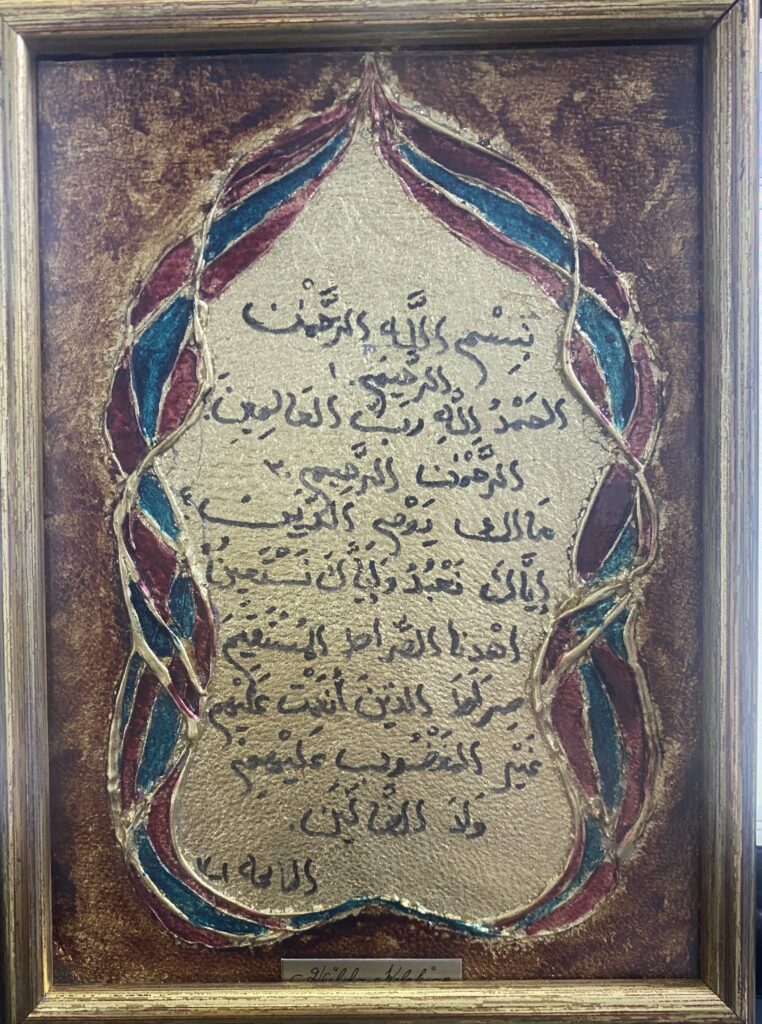 بِسْمِ اللَّهِ الرَّحْمٰنِ
الرَّحِيمِ ١
الحَمْدُ لِلَّهِ رَبِّ العَالمِينَ ٢
الرَّحْمٰنِ الرَّحِيمِ ٣
مَالكِ يَوْمِ الدِّينِ ٤
إِيَّاكَ نَعْبُدُ وَإِيَّاكَ نَسْتَعِينُ
اهْدِنَا الصِّرَاطَ المُسْتَقِيمَ
صِرَاطَ الذِينَ أَنْعَمْتَ عَلَيْهِمْ
غَيْرِ المَغْضُوبِ عَلَيْهِمْ
وَلَا الضَّالِّينَ.
الفاتحه ١-٧